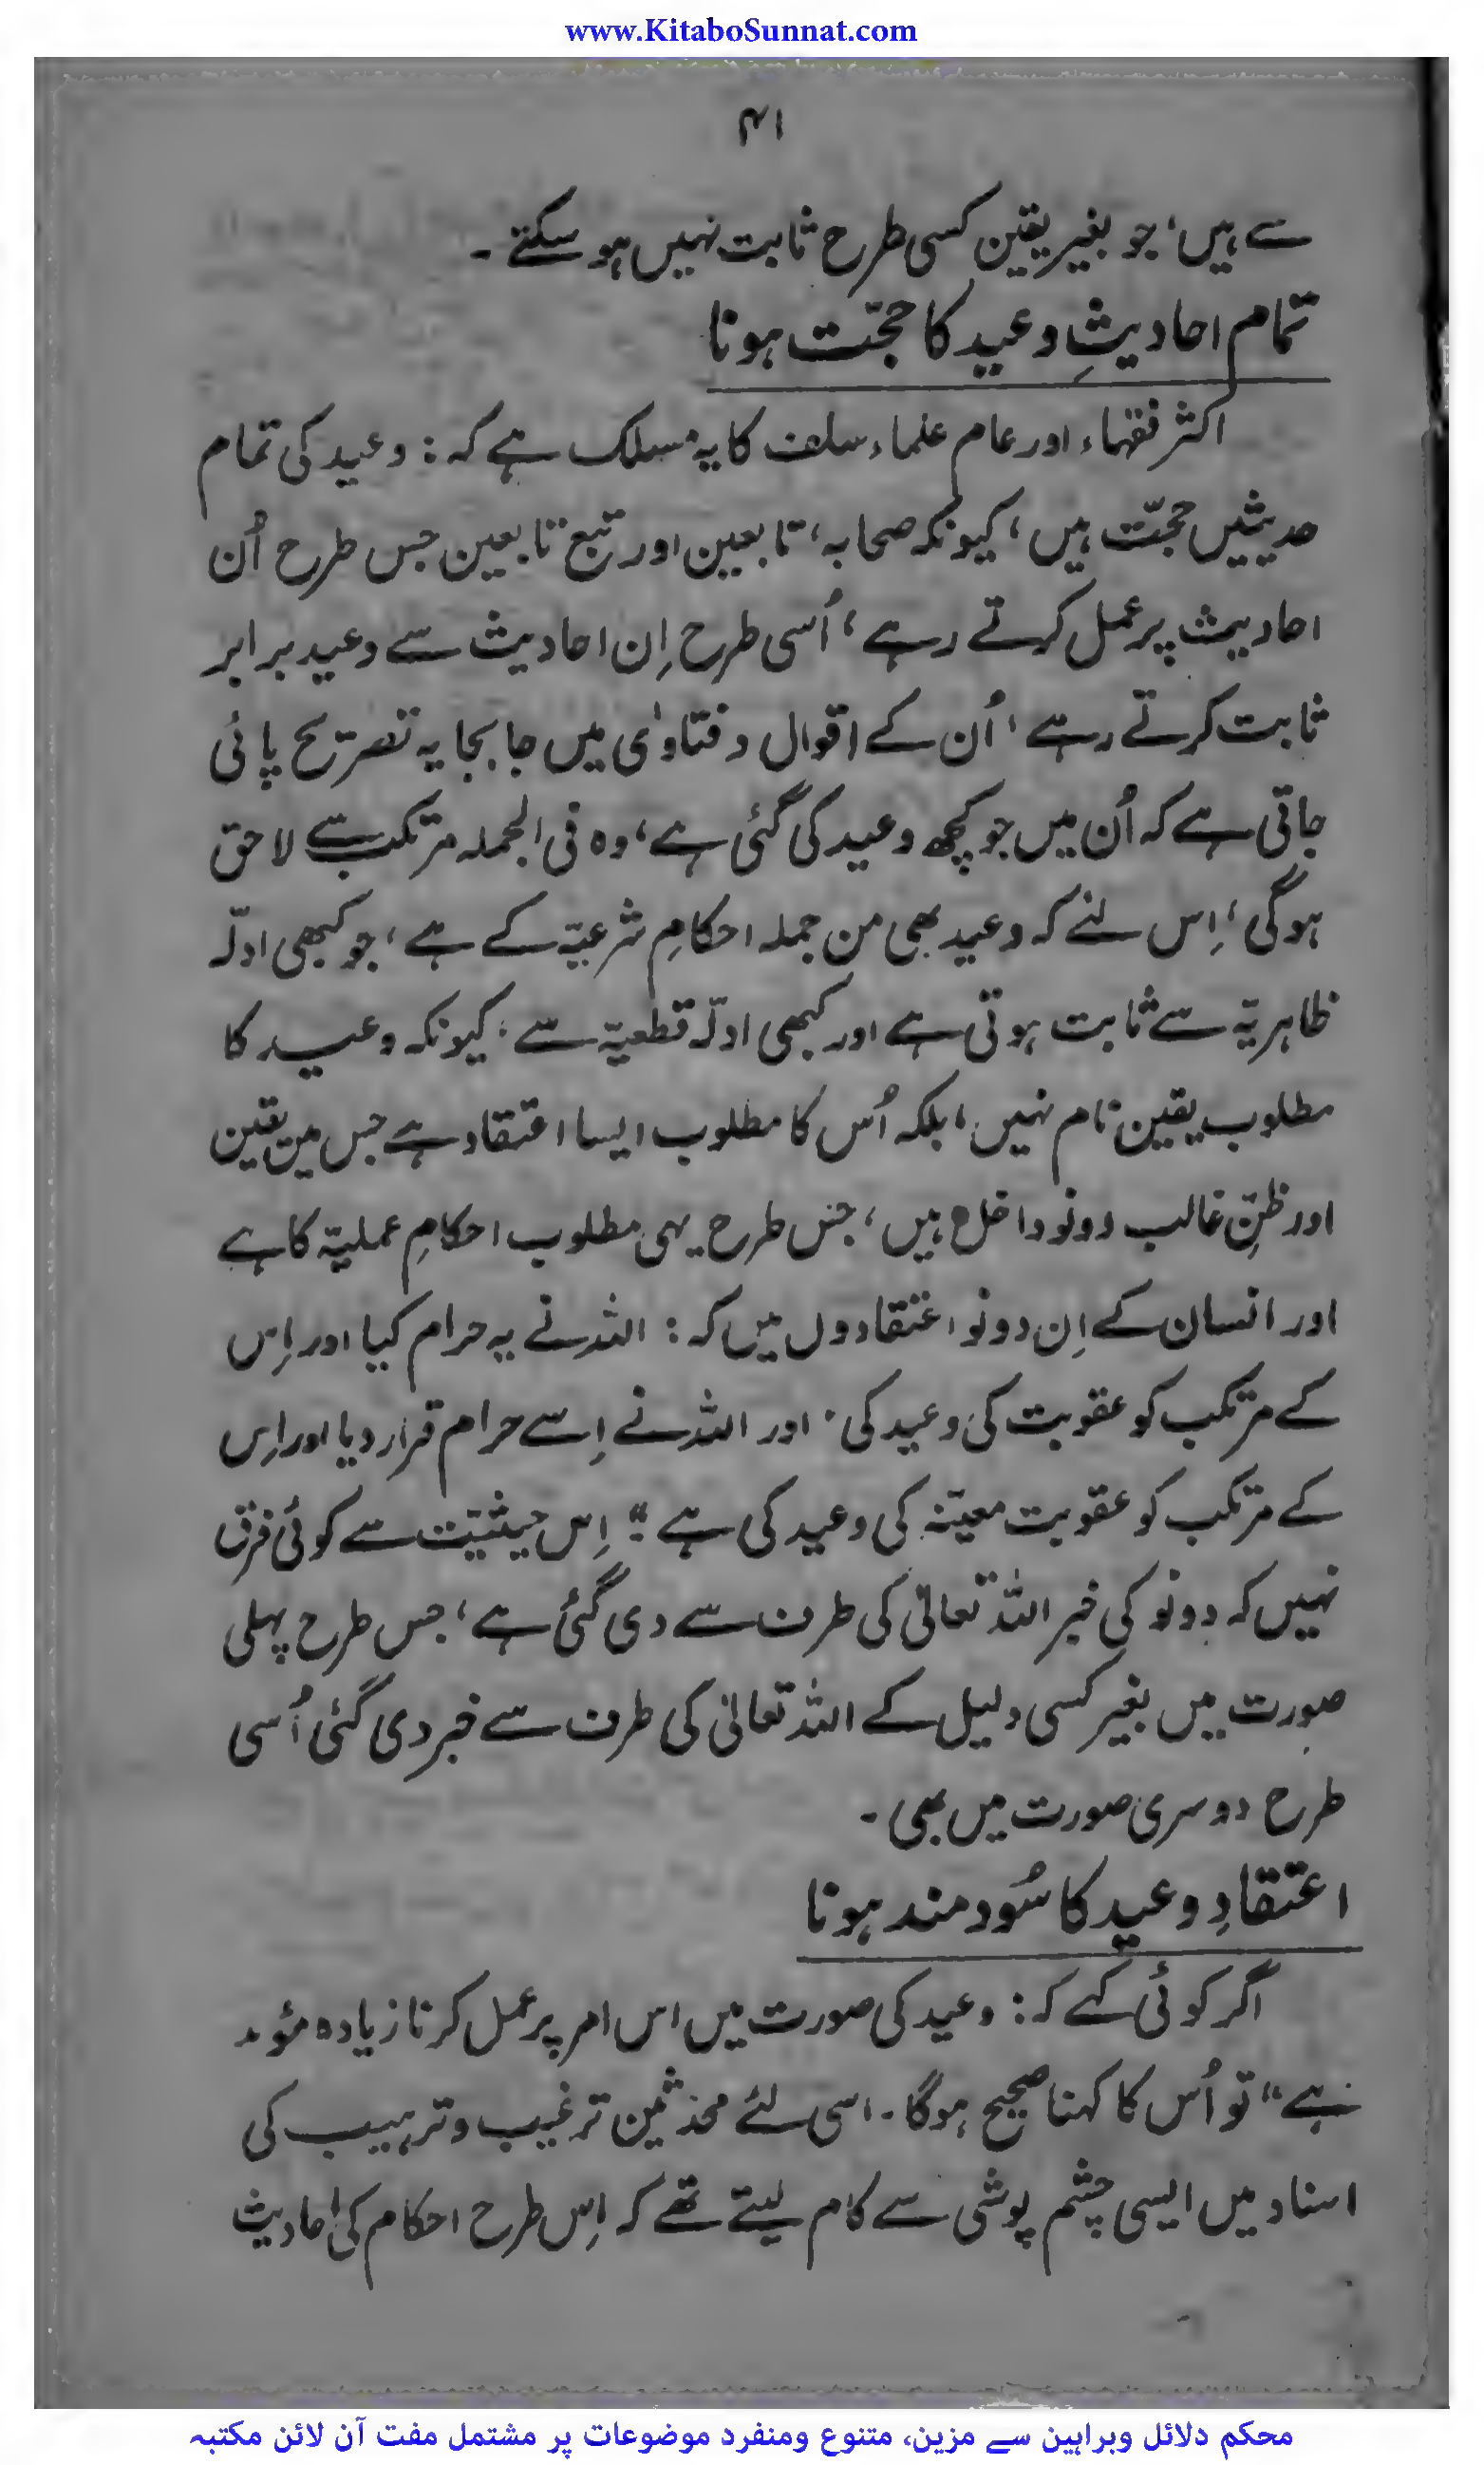 www.KitaboSunnat.com
۴۱
سے ہیں، جو بغیر یقین کسی طرح ثابت نہیں ہو سکتے۔
تمام احادیثِ وعید کا حجّت ہونا
اکثر فقہاء اور عام علماء سلف کا یہ مسلک ہے کہ: وعید کی تمام
حدیثیں حجّت ہیں، کیونکہ صحابہ، تابعین اور تبع تابعین جس طرح اُن
احادیث پر عمل کرتے رہے، اُسی طرح اِن احادیث سے وعید برابر
ثابت کرتے رہے، اُن کے اقوال و فتاوٰی میں جا بجا یہ تصریح پائی
جاتی ہے کہ اُن میں جو کچھ وعید کی گئی ہے، وہ فی الجملہ مرتکب سے لاحق
ہوگی، اِس لئے کہ وعید بھی من جملہ احکامِ شرعیّہ کے ہے، جو کبھی ادلّہ
ظاہریّہ سے ثابت ہوتی ہے اور کبھی ادلّہ قطعیّہ سے، کیونکہ وعید کا
مطلوب یقین تام نہیں، بلکہ اُس کا مطلوب ایسا اعتقاد ہے جس میں یقین
اور ظنِّ غالب دونو داخل ہیں، جس طرح یہی مطلوب احکامِ عملیّہ کا ہے
اور انسان کے اِن دونو اعتقادوں میں کہ: اللہ نے یہ حرام کیا اور اِس
کے مرتکب کو عقوبت کی وعید کی، اور اللہ نے اِسے حرام قرار دیا اور اِس
کے مرتکب کو عقوبت معیّنہ کی وعید کی ہے" اِس حیثیّت سے کوئی فرق
نہیں کہ دونو کی خبر اللہ تعالیٰ کی طرف سے دی گئی ہے، جس طرح پہلی
صورت میں بغیر کسی دلیل کے اللہ تعالیٰ کی طرف سے خبر دی گئی اُسی
طرح دوسری صورت میں بھی۔
اعتقادِ وعید کا سُود مند ہونا
اگر کوئی کہے کہ: وعید کی صورت میں اس امر پر عمل کرنا زیادہ مؤکد
ہے" تو اُس کا کہنا صحیح ہوگا۔ اسی لئے محدّثین ترغیب و ترہیب کی
اسناد میں ایسی چشم پوشی سے کام لیتے تھے کہ اِس طرح احکام کی احادیث
محکم دلائل وبراہین سے مزین، متنوع ومنفرد موضوعات پر مشتمل مفت آن لائن مکتبہ